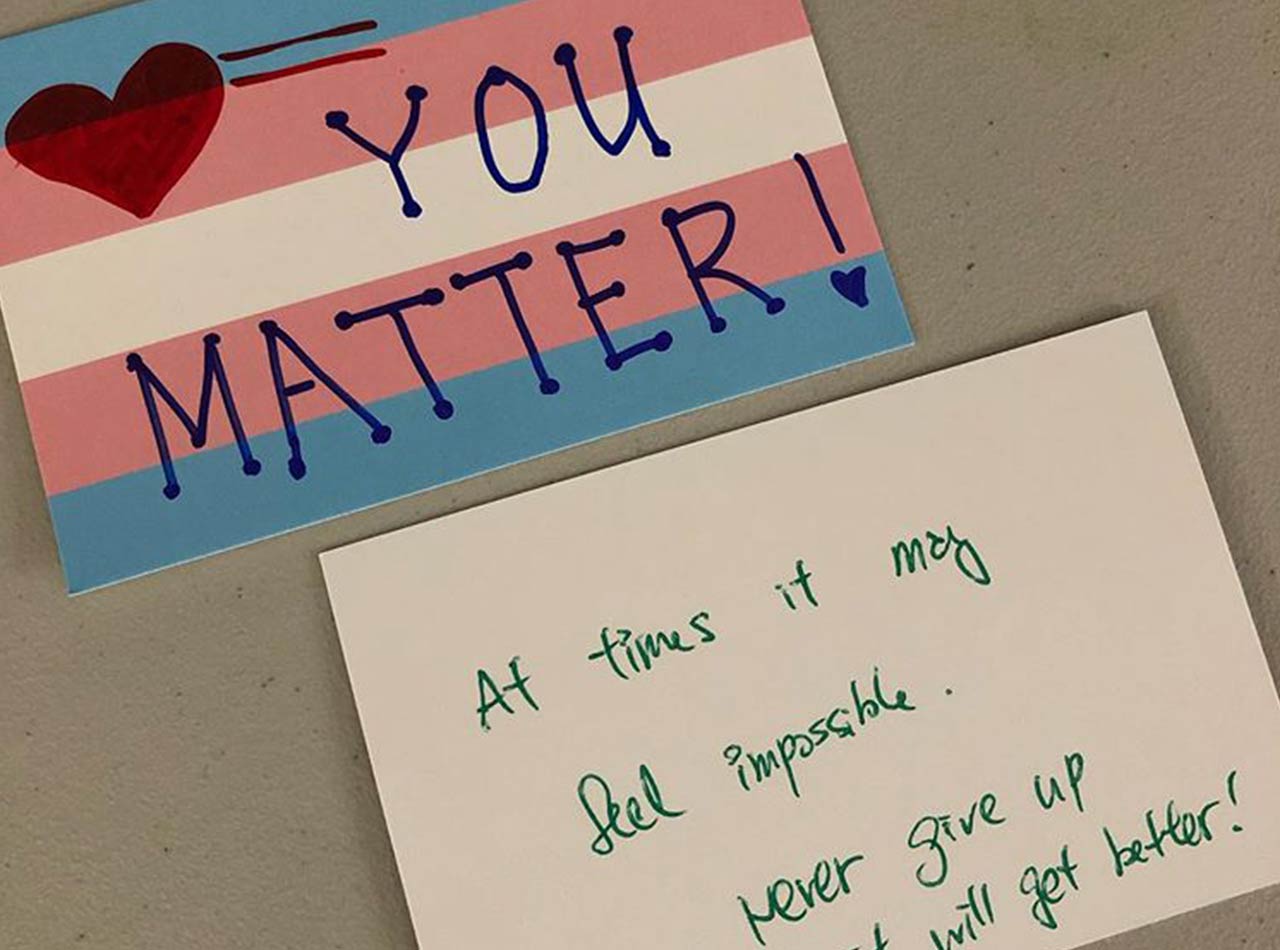 YOU
MATTER!
At times it may
feel impossible.
Never give up
will get better!